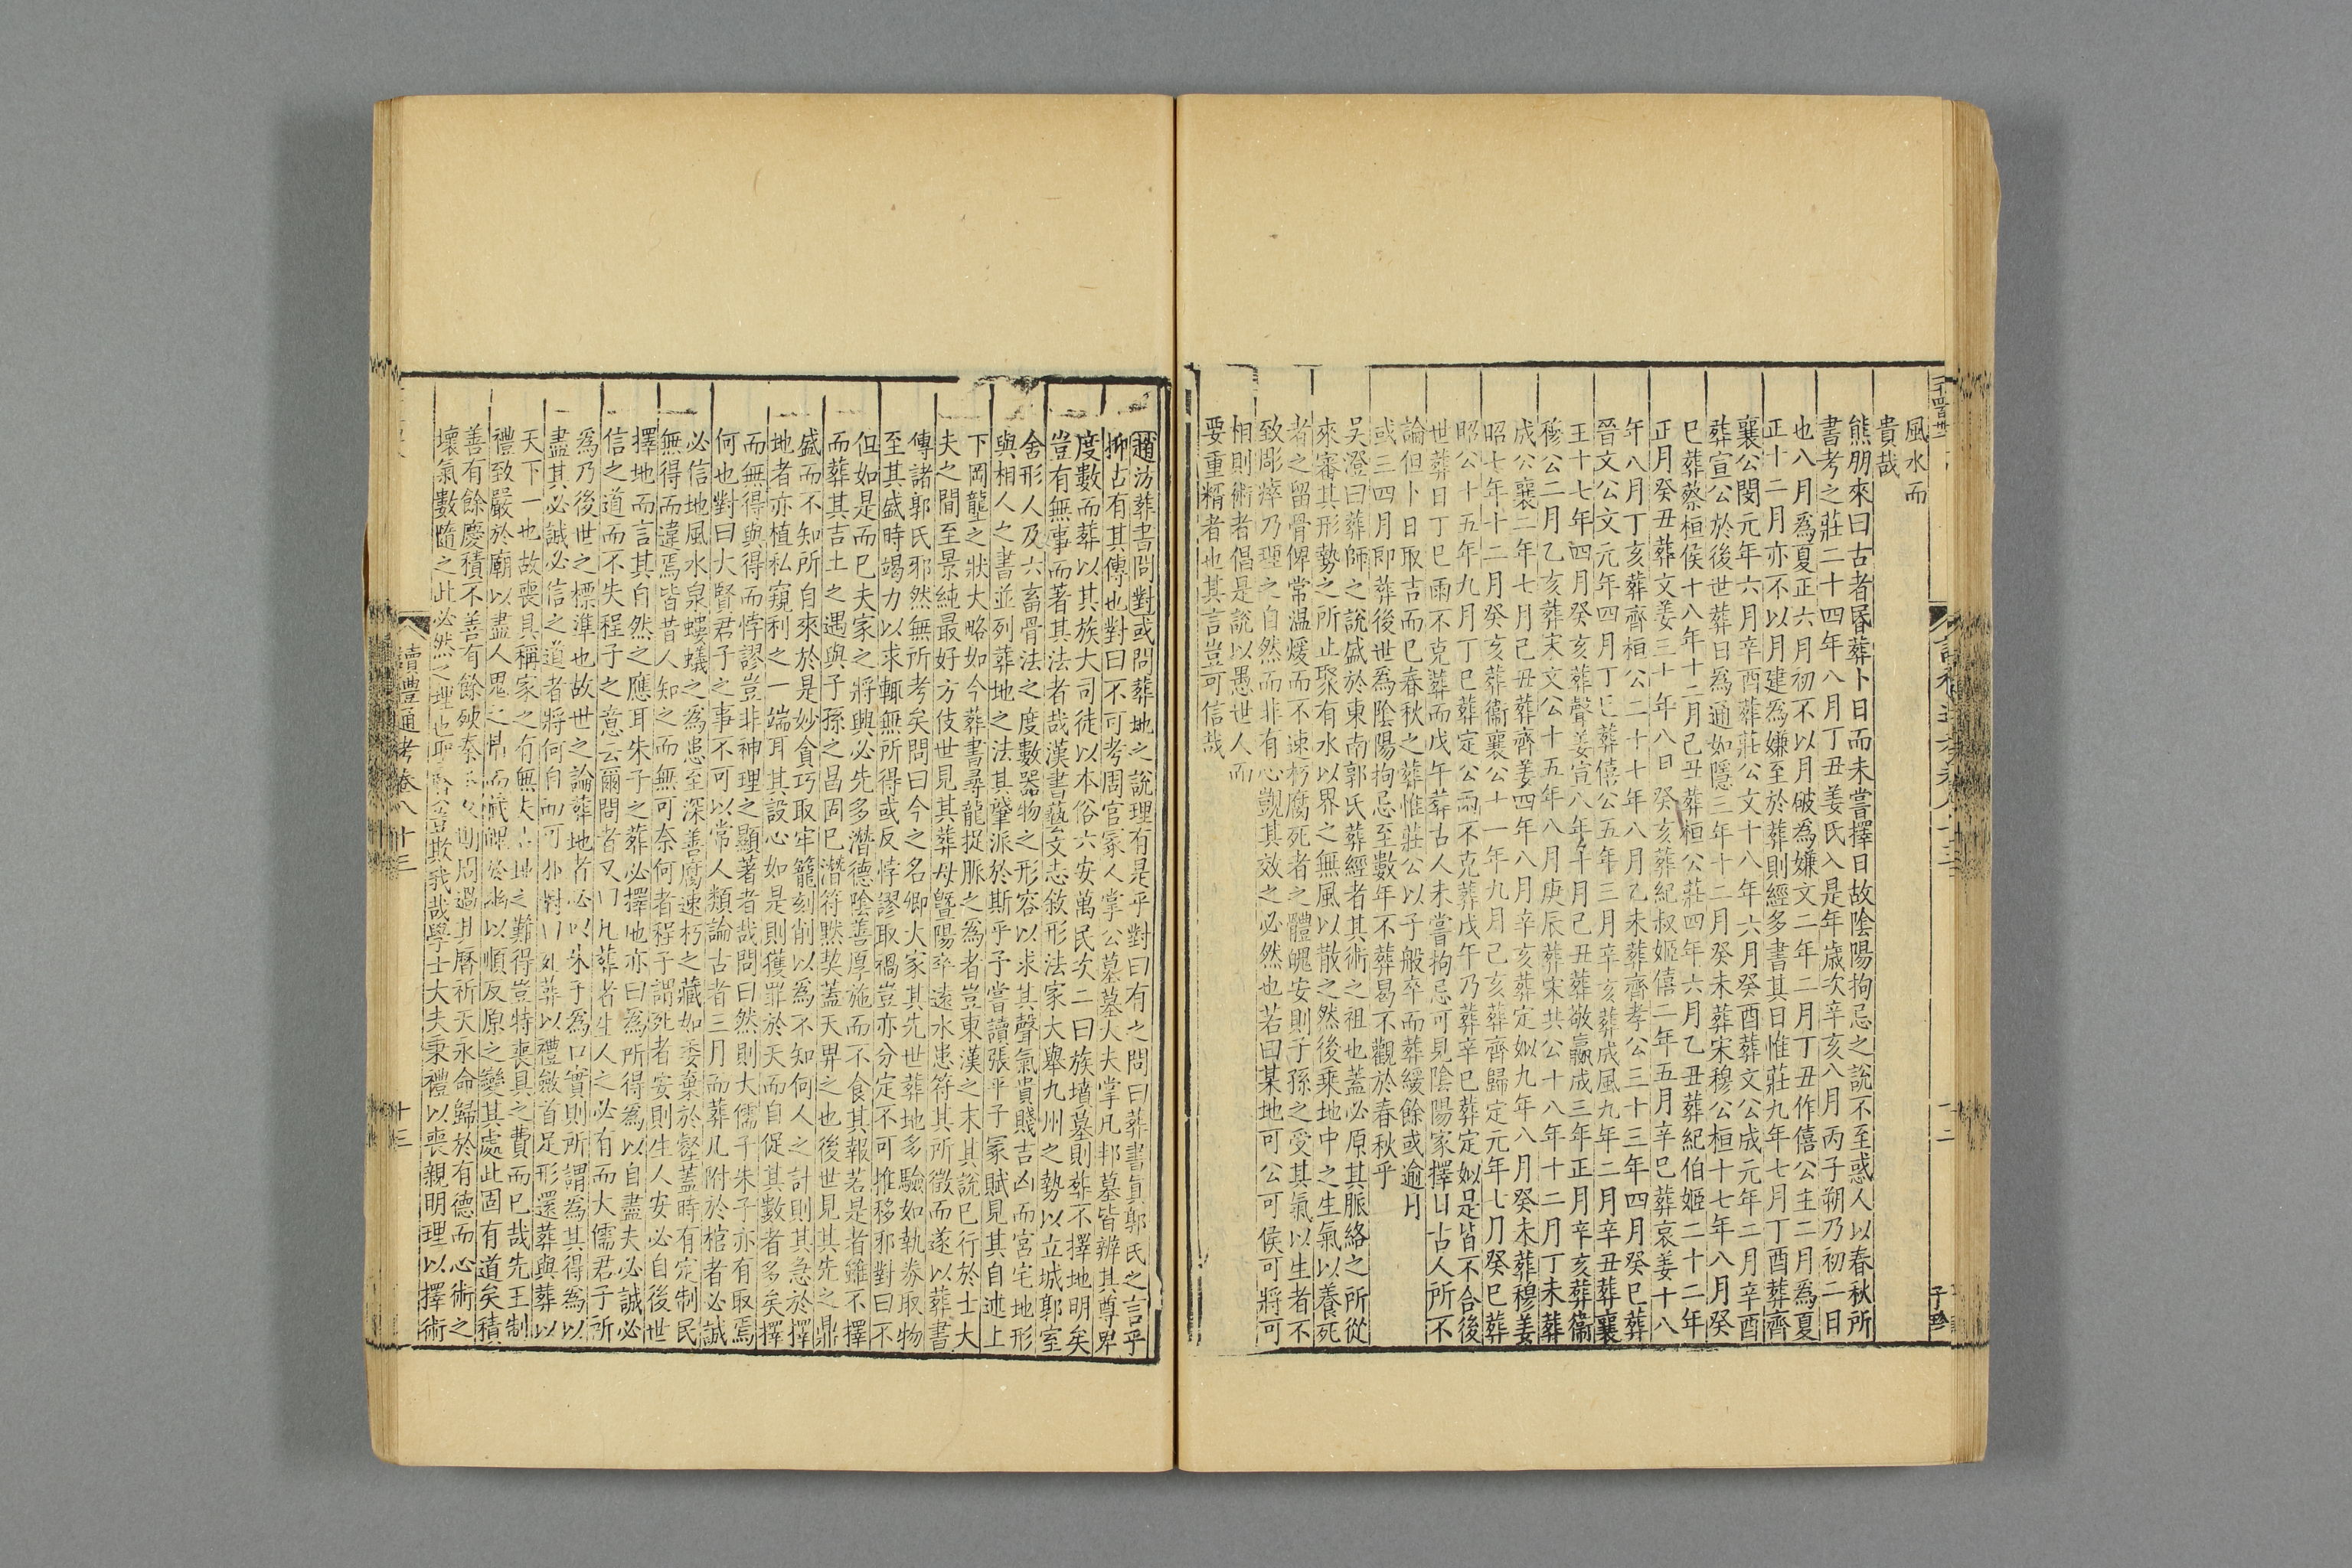 風水而
貴哉
熊朋來曰古者昬葬卜日而未嘗擇日故陰陽拘忌之說不至惑人以春秋所
書考之莊二十四年八月丁丑姜氏入是年歲次辛亥八月丙子朔乃初二日
也八月為夏正六月初不以月破為嫌文二年二月丁丑作僖公主二月為夏
正十二月亦不以月建為嫌至於葬則經多書其日惟莊九年七月丁酉葬齊
襄公閔元年六月辛酉葬莊公文十八年六月癸酉葬文公成元年二月辛酉
葬宣公於後世葬日為通如隱三年十二月癸未葬宋穆公桓十七年八月癸
巳葬蔡桓侯十八年十二月己丑葬桓公莊四年六月乙丑葬紀伯姬二十二年
正月癸丑葬文姜三十年八日癸亥葬紀叔姬僖二年五月辛巳葬哀姜十八
年八月丁亥葬齊桓公二十七年八月乙未葬齊孝公三十三年四月癸巳葬
晉文公文元年四月丁巳葬僖公五年三月辛亥葬成風九年二月辛丑葬襄
王十七年四月癸亥葬聲姜宣八年十月己丑葬敬嬴成三年正月辛亥葬衞
穆公二月乙亥葬宋文公十五年八月庚辰葬宋共公十八年十二月丁未葬
成公襄二年七月己丑葬齊姜四年八月辛亥葬定姒九年八月癸未葬穆姜
昭七年十二月癸亥葬衞襄公十一年九月己亥葬齊歸定元年七月癸巳葬
昭公十五年九月丁巳葬定公雨不克葬戊午乃葬辛巳葬定姒是皆不合後
世葬日丁巳雨不克葬而戊午葬古人未嘗拘忌可見陰陽家擇日古人所不
論但卜日取吉而巳春秋之葬惟莊公以子般卒而葬緩餘或逾月
或三四月即葬後世為陰陽拘忌至數年不葬曷不觀於春秋乎
吳澄曰葬師之說盛於東南郭氏葬經者其術之祖也蓋必原其脈絡之所從
來審其形勢之所止聚有水以界之無風以散之然後乘地中之生氣以養死
者之留骨俾常溫煖而不速朽腐死者之體魄安則子孫之受其氣以生者不
致彫瘁乃理之自然而非有心覬其效之必然也若曰某地可公可侯可將可
相則術者倡是說以愚世人而
要重糈者也其言豈可信哉
趙汸葬書問對或問葬地之說理有是乎對曰有之問曰葬書真郭氏之言乎
抑古有其傳也對曰不可考周官冢人掌公墓墓大夫掌凡邦墓皆辨其尊卑
度數而葬以其族大司徒以本俗六安萬民次二曰族墳墓則葬不擇地明矣
豈有無事而著其法者哉漢書藝文志敘形法家大舉九州之勢以立城郭室
舍形人及六畜骨法之度數器物之形容以求其聲氣貴賤吉凶而宮宅地形
與相人之書並列葬地之法其肇派於斯乎予嘗讀張平子冢賦見其自述上
下岡龍之狀大略如今葬書尋龍捉脈之為者豈東漢之末其說已行於士大
夫之間至景純最好方伎世見其葬母暨陽卒遠水患符其所徵而遂以葬書
傳諸郭氏邪然無所考矣問曰今之名卿大家其先世葬地多驗如執券取物
至其盛時竭力以求輒無所得或反悖謬取禍豈亦分定不可推移邪對曰不
但如是而巳夫家之將興必先多潛德陰善厚施而不食其報若是者雖不擇
而葬其吉土之遇與子孫之昌固巳潛符默契蓋天畀之也後世見其先之鼎
盛而不知所自來於是妙貪巧取牢籠刻削以為不知何人之計則其急於擇
地者亦植私窺利之一端耳其設心如是則獲罪於天而自促其數者多矣擇
而無得與得而悖謬豈非神理之顯著者哉問曰然則大儒子朱子亦有取焉
何也對曰大賢君子之事不可以常人類論古者三月而葬凡附於棺者必誠
必信地風水泉螻蟻之為患至深善腐速朽之藏如委棄於壑蓋時有定制民
無得而違焉皆昔人知之而無可奈何者程子謂死者安則生人安必自後世
擇地而言其自然之應耳朱子之葬必擇地亦曰為所得為以自盡夫必誠必
信之道而不失程子之意云爾問者又曰凡葬者生人之必有而大儒君子所
為乃後世之標準也故世之論葬地者必以朱子為口實則所謂為其得為以
盡其必誠必信之道者將何自而可
天下一也故喪具稱家之有無夫
禮致嚴於廟以盡人鬼之
善有餘慶積不善有餘殃秦
壞氣數隨之此必然之理也
讀禮通考卷八十三
十三